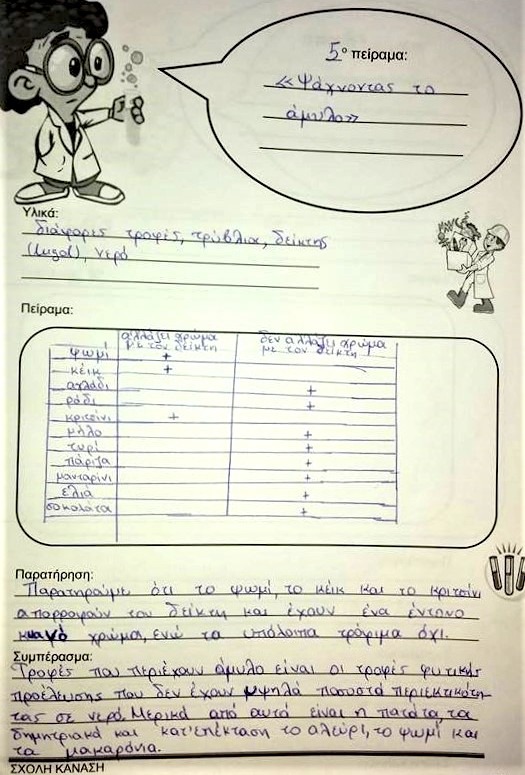 5° πείραμα:
«Ψάχνοντας το
άμυλο»
Υλικά:
διάφορες τροφές, τρύβλια, δείκτης
(lugol), νερό
Πείραμα:
αλλάζει χρώμα
με τον δείκτη
δεν αλλάζει χρώμα
με τον δείκτη
ψωμί +
κέικ +
αχλάδι +
ρόδι +
κριτσίνι +
μήλο +
τυρί +
πάριζα +
μανταρίνι +
ελιά +
σοκολάτα +
Παρατήρηση:
Παρατηρούμε ότι το ψωμί, το κέικ και το κριτσίνι
απορροφούν τον δείκτη και έχουν ένα έντονο
κυανό χρώμα, ενώ τα υπόλοιπα τρόφιμα όχι.
Συμπέρασμα:
Τροφές που περιέχουν άμυλο είναι οι τροφές φυτικής
προέλευσης που δεν έχουν υψηλά ποσοστά περιεκτικότη-
τας σε νερό. Μερικά από αυτά είναι η πατάτα, τα
δημητριακά και κατ'επέκταση το αλεύρι, το ψωμί και
τα μακαρόνια.
ΣΧΟΛΗ ΚΑΝΑΣΗ